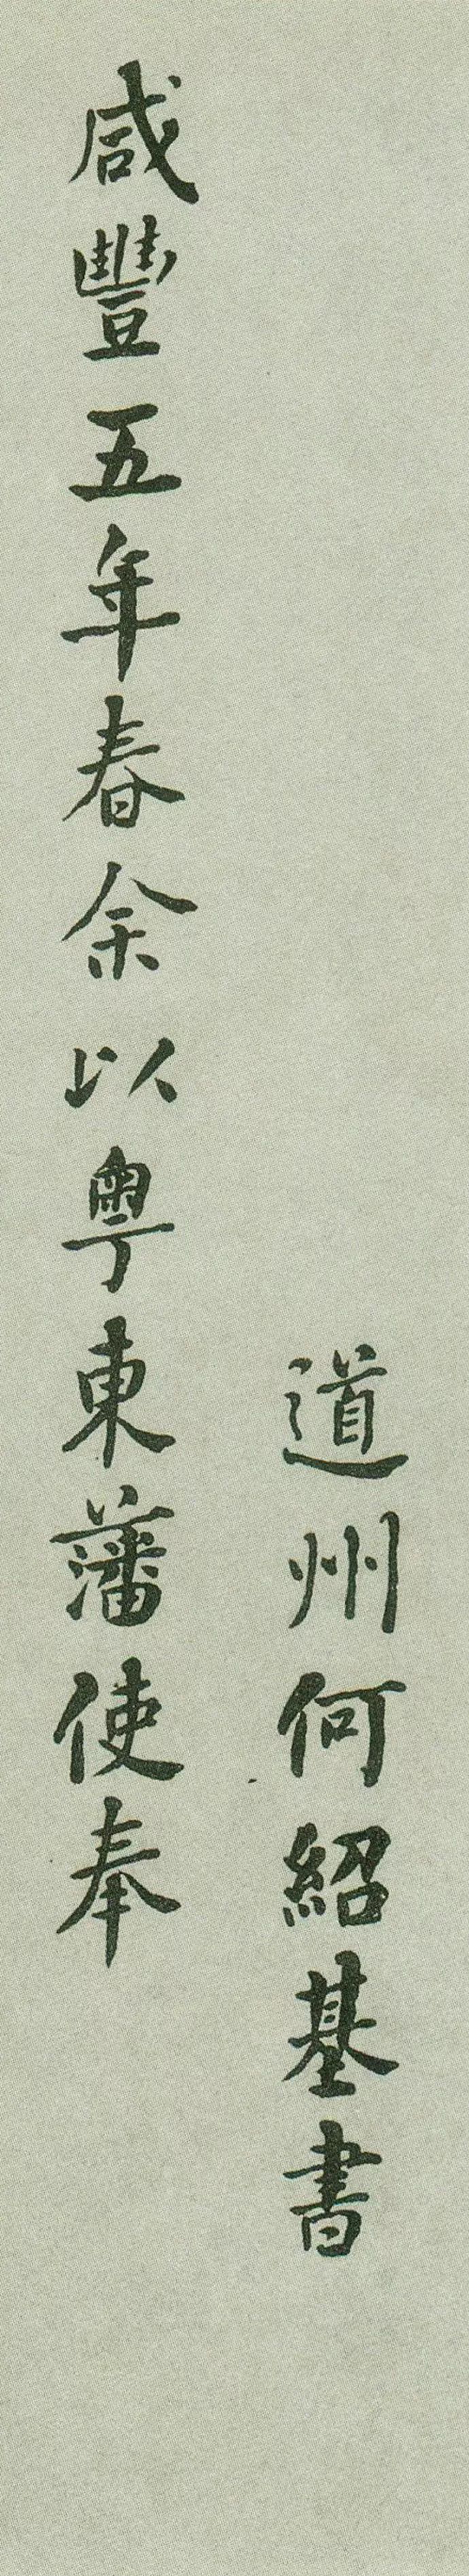 道州何紹基書
咸豐五年春余以粵東藩使奉